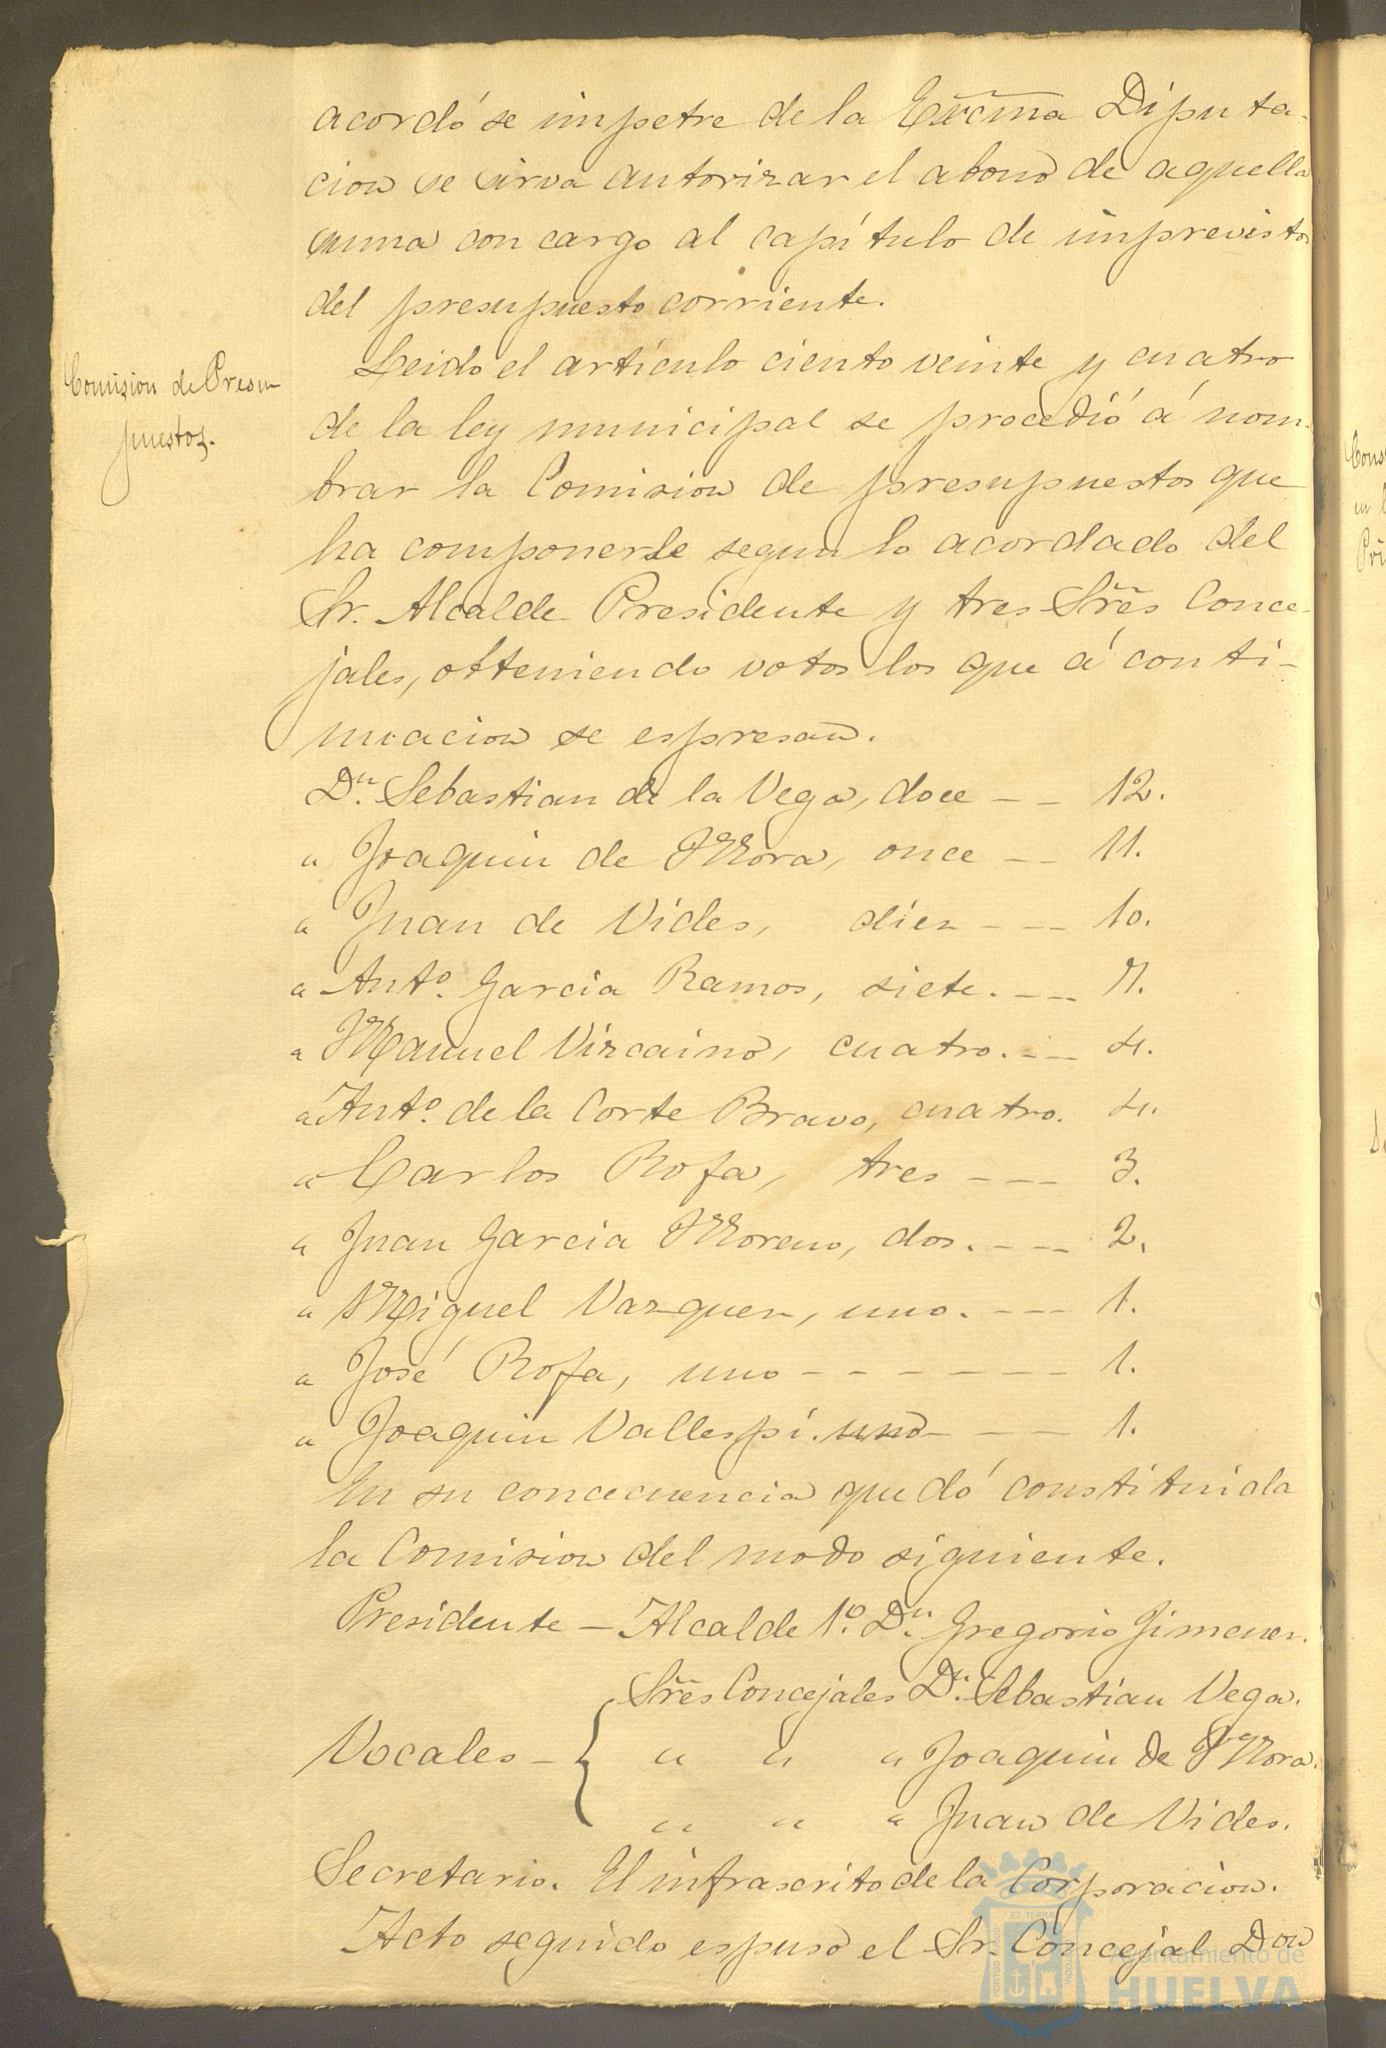 acordó se impetre de la Excma Diputa-
cion se sirva autorizar el abono de aquella
suma con cargo al capítulo de imprevistos
del presupuesto corriente.
Comision de Presu
puestos.
Leido el artículo ciento veinte y cuatro
de la ley municipal se procedió á nom-
brar la Comision de presupuestos que
ha componerse segun lo acordado del
Sr. Alcalde Presidente y tres Sres Conce-
jales, obteniendo votos los que á conti-
nuacion se espresan.
Dn. Sebastian de la Vega, doce -- 12.
" Joaquin de Mora, once -- 11.
" Juan de Vides, diez --- 10.
" Anto. Garcia Ramos, siete. --- 7.
" Manuel Vizcaino, cuatro. --- 4.
" Anto. de la Corte Bravo, cuatro. 4.
" Carlos Rofa, tres --- 3.
" Juan Garcia Moreno, dos. --- 2.
" Miguel Vazquez, uno. --- 1.
" José Rofa, uno ------- 1.
" Joaquin Vallespí. uno --- 1.
En su concecuencia quedó constituida
la Comision del modo siguiente.
Presidente - Alcalde 1o. Dn. Gregorio Jimenez.
Sres Concejales Dn. Sebastian Vega.
Vocales - { " " " Joaquin de Mora.
" " " Juan de Vides.
Secretario. El infrascrito de la Corporacion.
Acto seguido espuso el Sr. Concejal Don
Ayuntamiento de
HUELVA